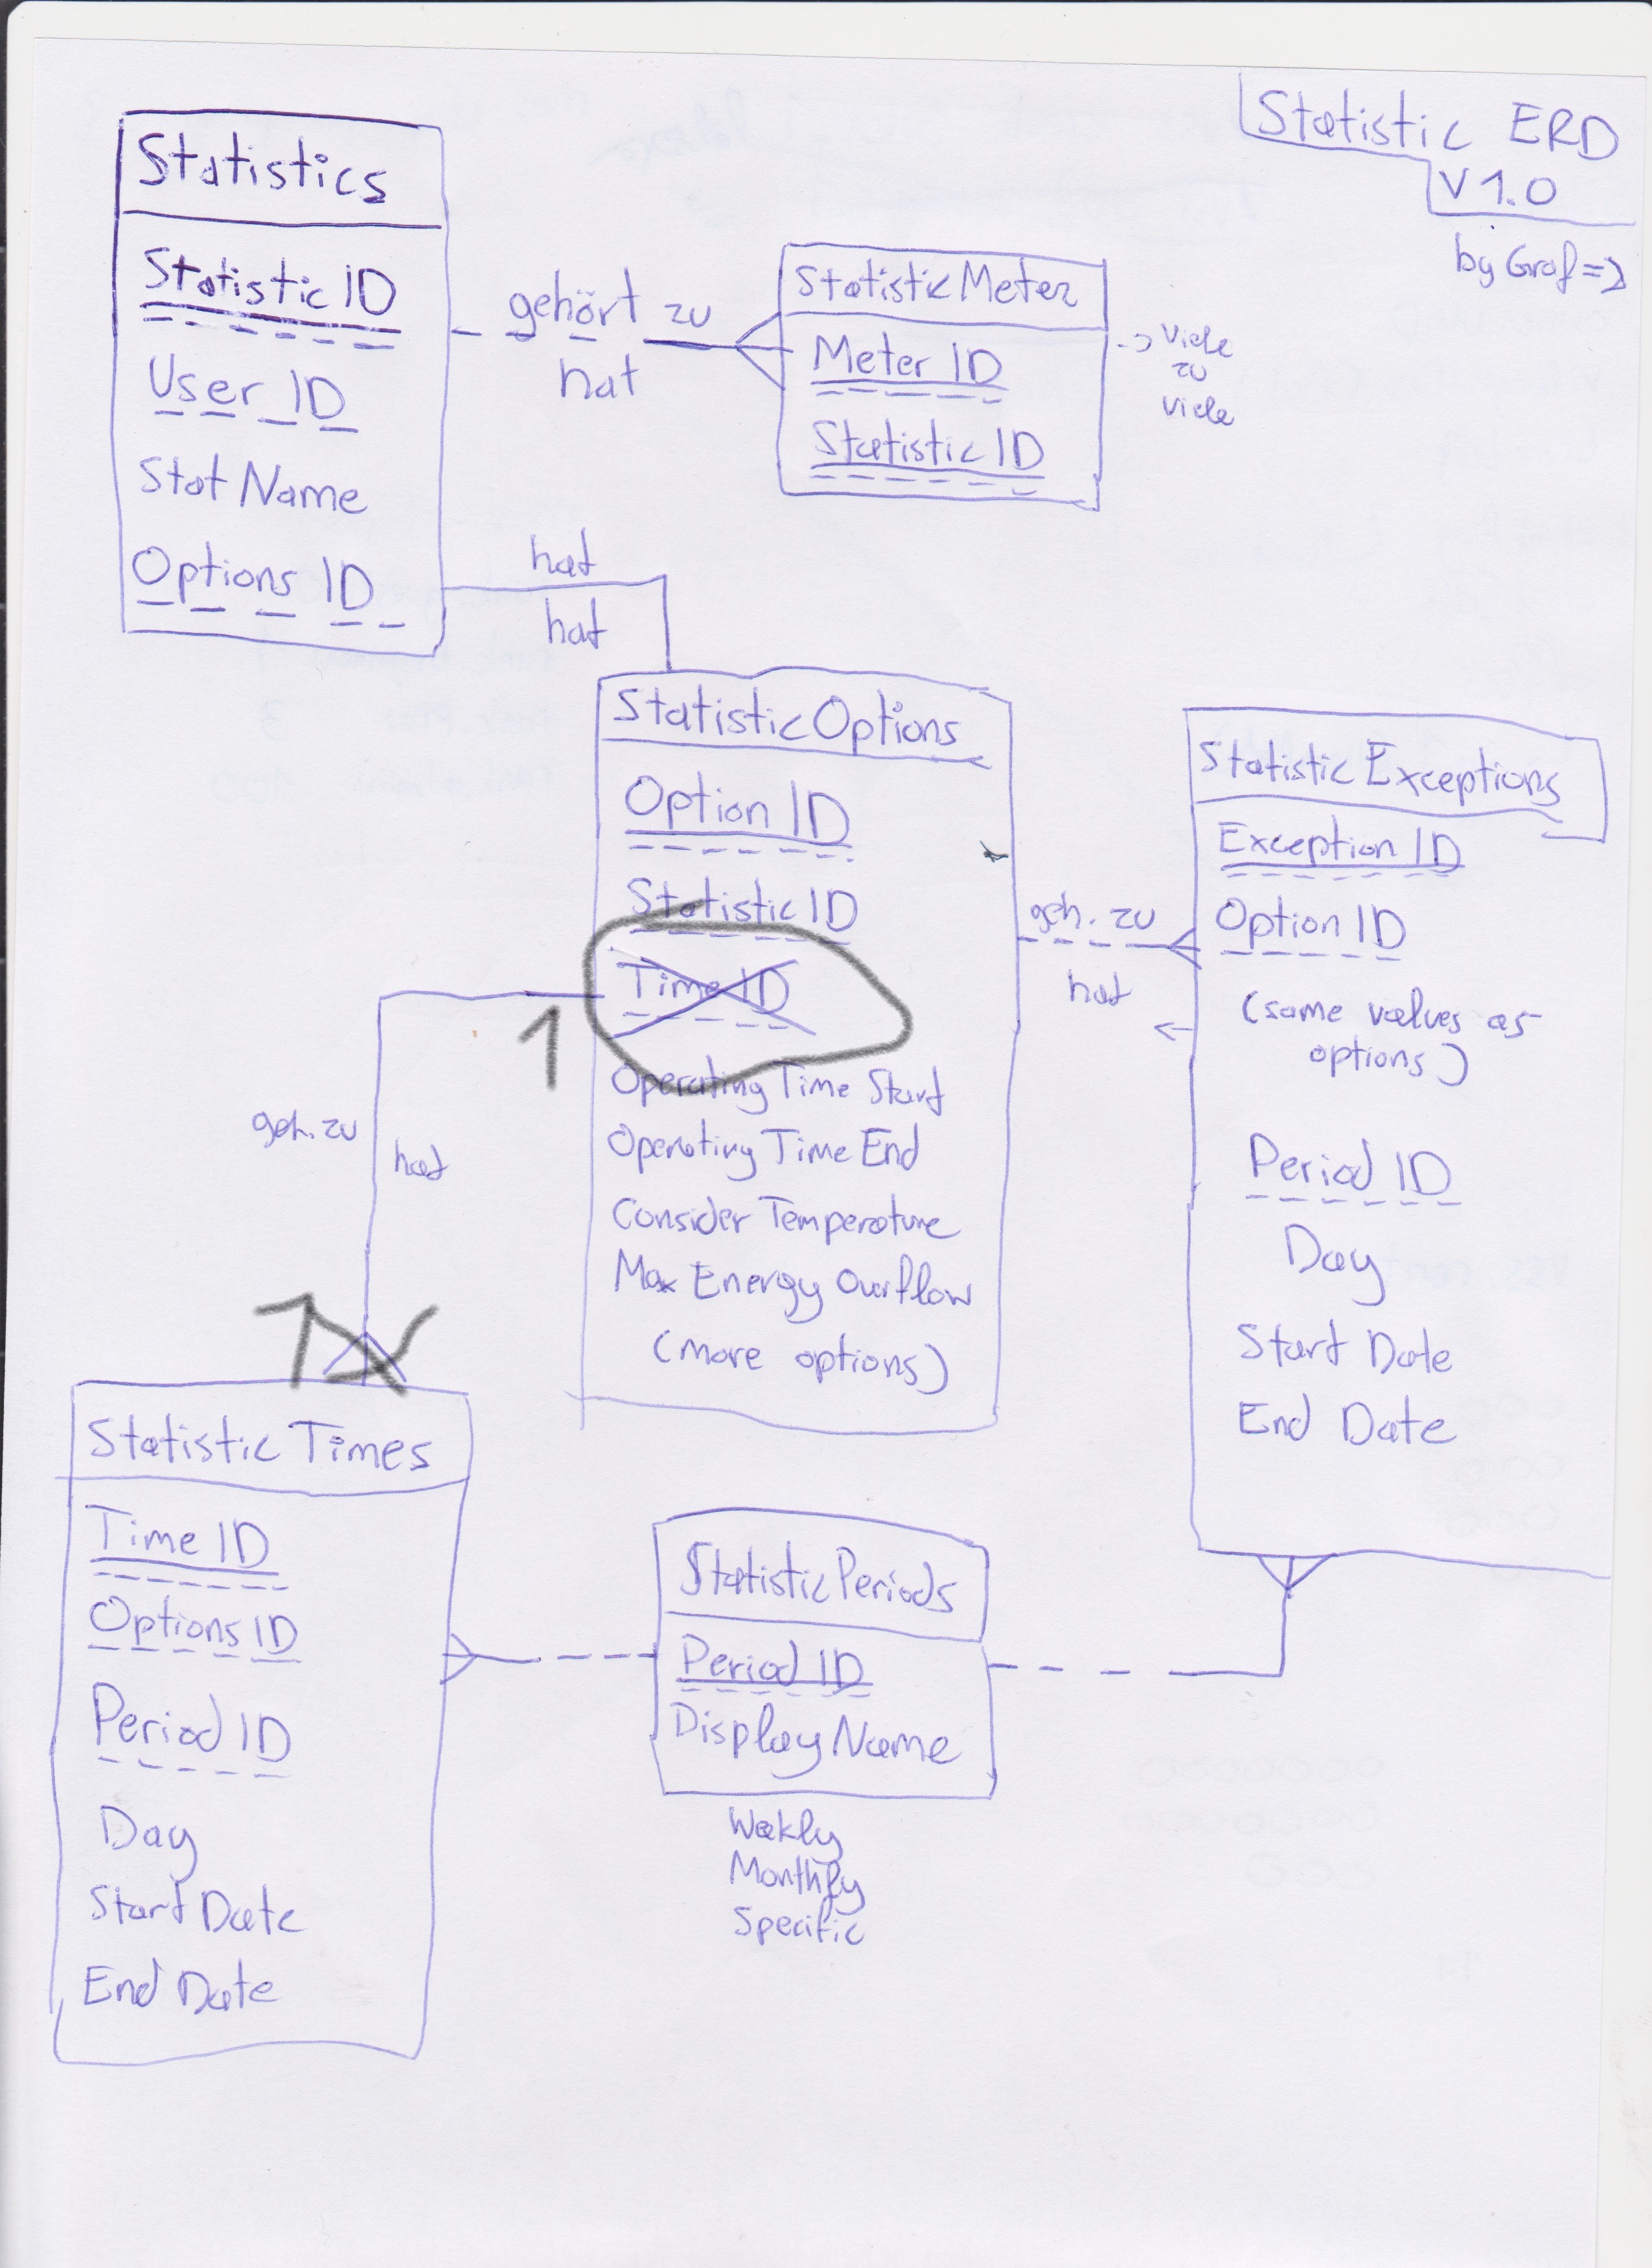 Statistic ERD
V 1.0
by Graf =>
Statistics
Statistic ID
User_ID
Stat Name
Options ID
gehört zu
hat
Statistic Meter
Meter ID
Statistic ID
-> Viele
zu
Viele
hat
hat
Statistic Options
Option ID
Statistic ID
Time ID
Operating Time Start
Operating Time End
Consider Temperature
Max Energy Ourflow
(more options)
geh. zu
hat
Statistic Exceptions
Exception ID
Option ID
(same values as
options)
Period ID
Day
Start Date
End Date
1
geh. zu
hat
1
Statistic Times
Time ID
Options ID
Period ID
Day
Start Date
End Date
Statistic Periods
Period ID
Display Name
Weekly
Monthly
Specific